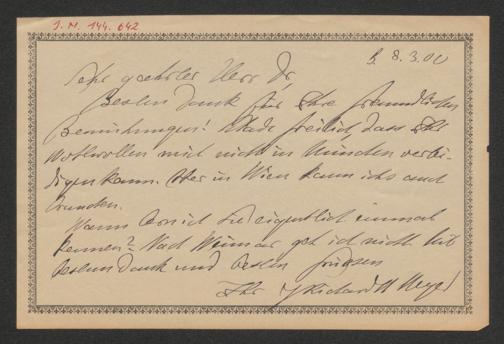 I. N. 144.642
B 8.3.00
Sehr geehrter Herr Dr,
Besten Dank für Ihre freundlichen
Bemühungen! Schade freilich dass Ihr
Wohlwollen mich nicht in München vertei-
digen kann. Aber in Wien kann ichs auch
brauchen.
Wann lern ich Sie eigentlich einmal
kennen? Nach Weimar geh ich nicht. Mit
bestem Dank und besten Grüssen
Ihr Richard M Meyer